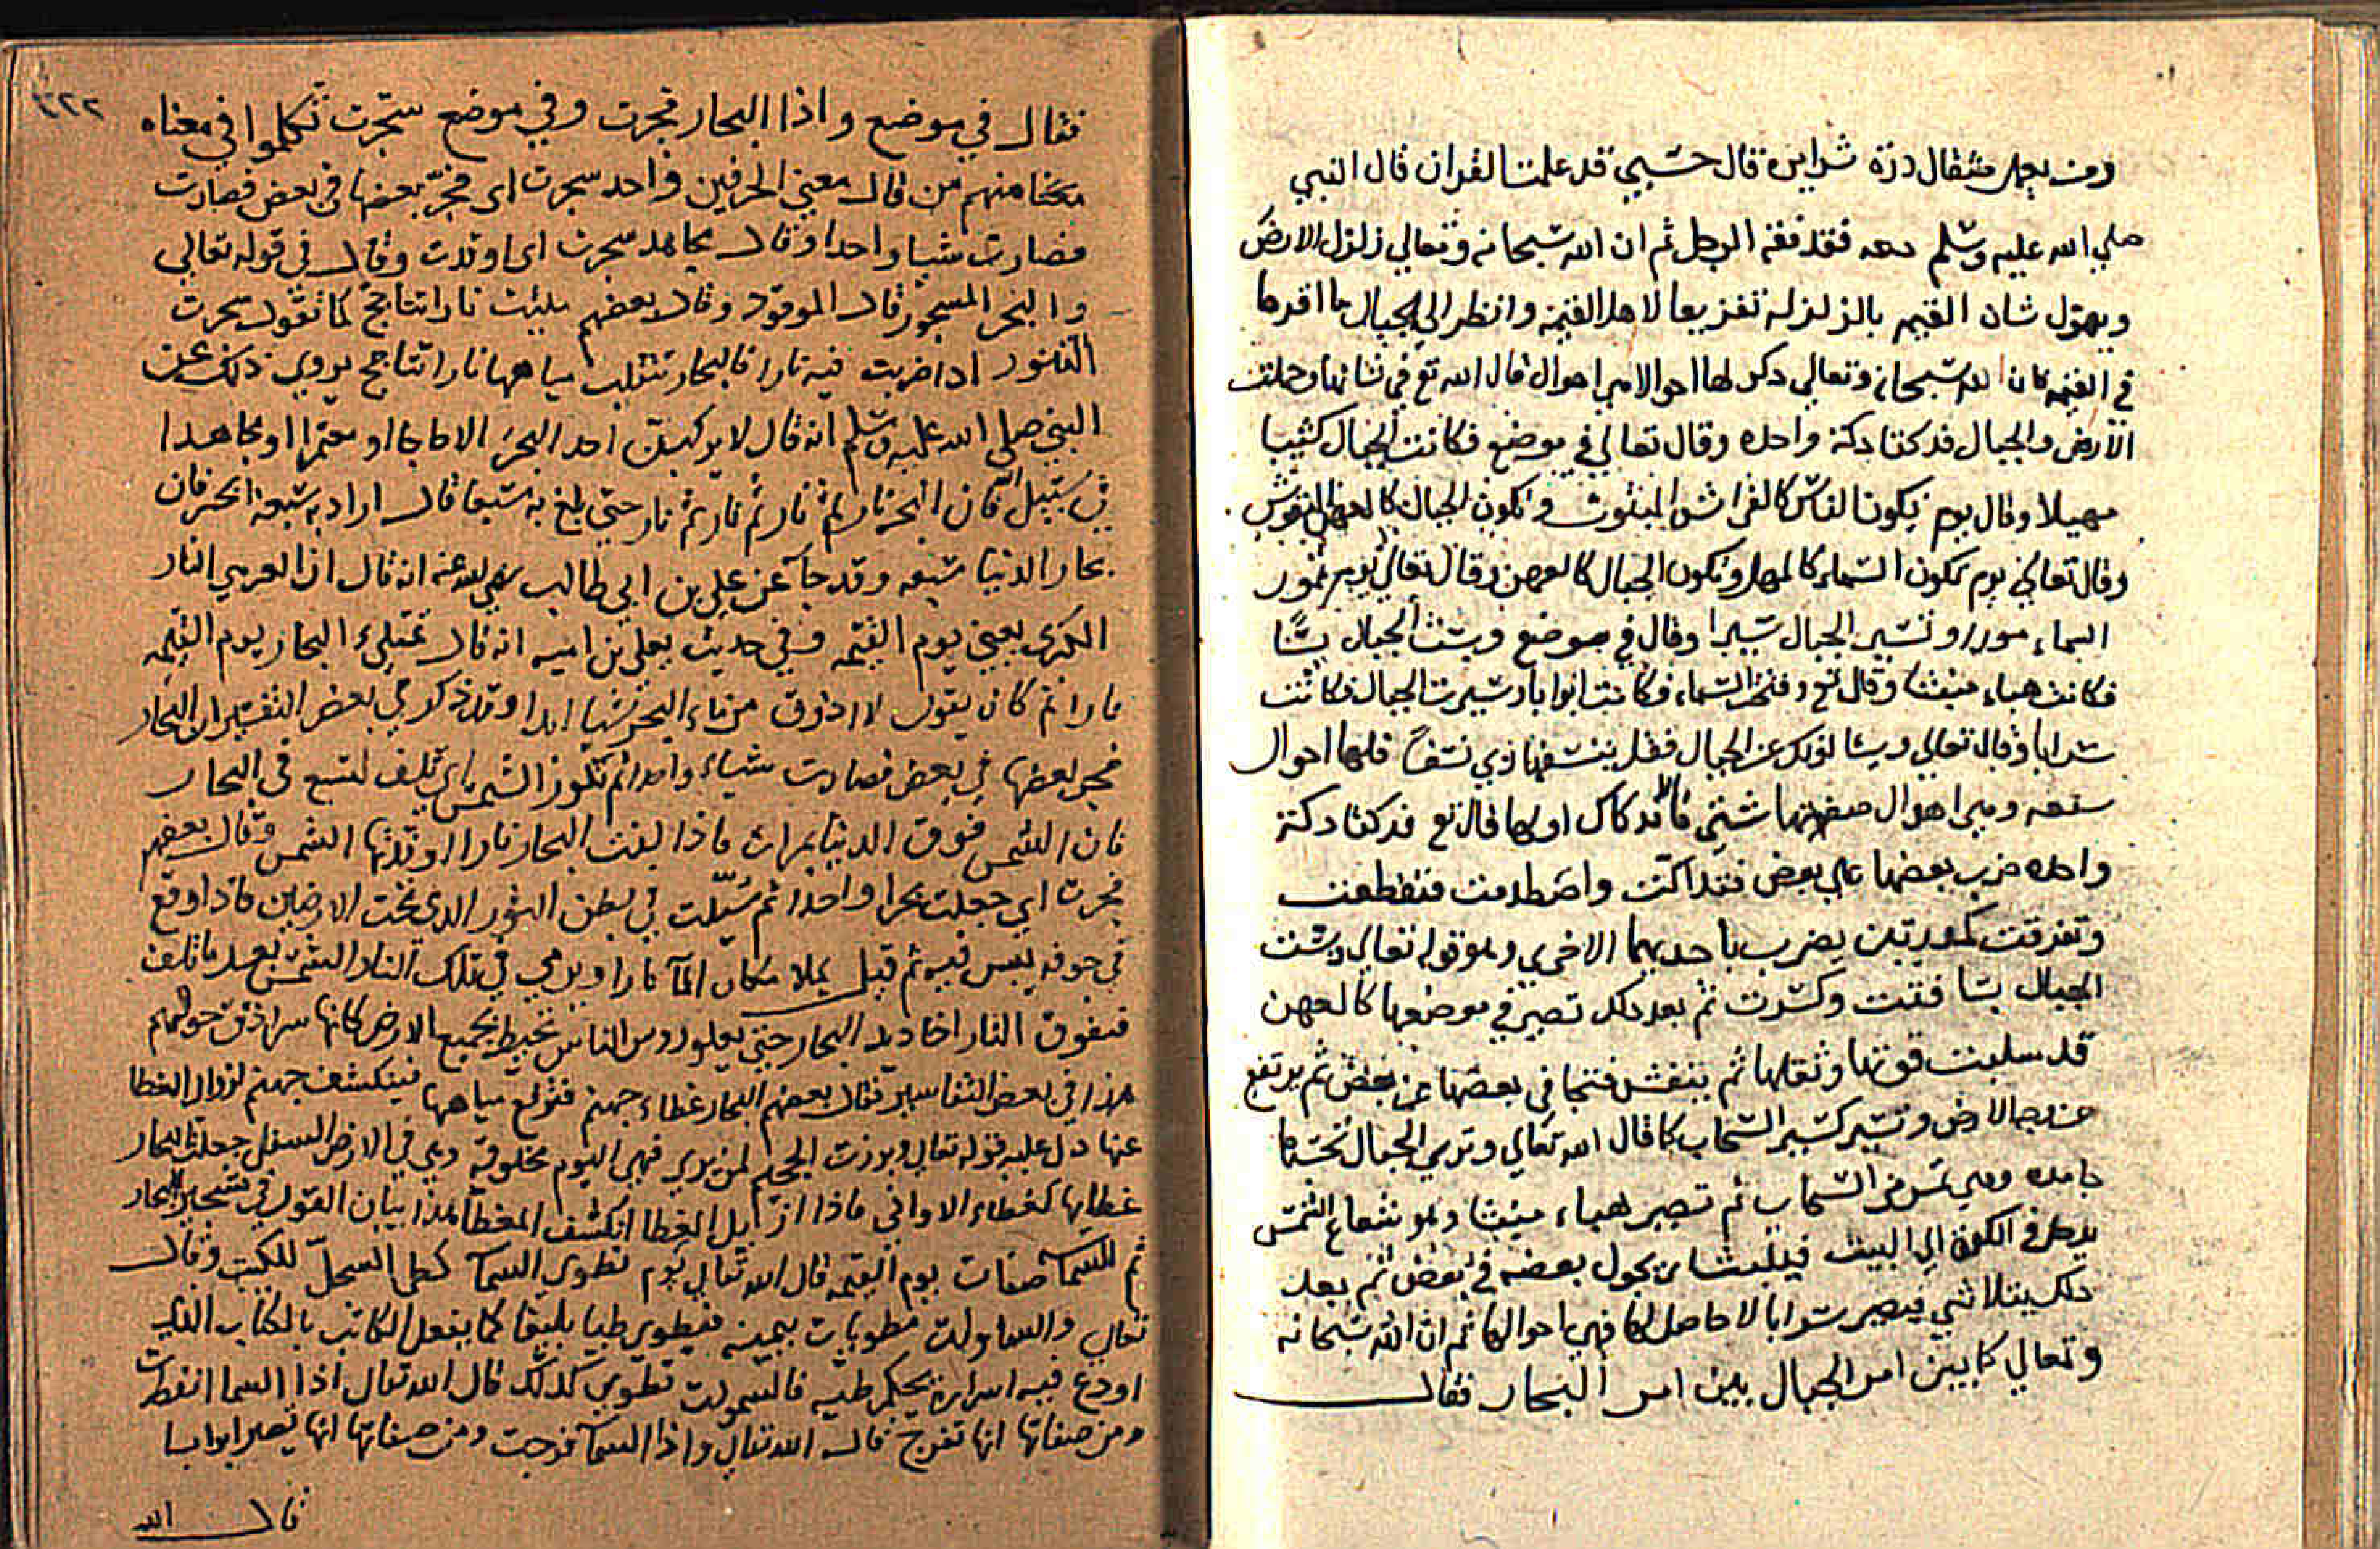 ومن يعمل مثقال ذرة شرايره قال حسبي قد علمت القران قال النبي
صلي الله عليه وسلم دعه فقد فقه الرجل ثم ان الله سبحانه وتعالي زلزل الارض
ويهول شان القيمه بالزلزلة تفزيعا لاهل القيمة وانظر الي الجبال ما اقرها
في القيمه فان الله سبحانه وتعالي دكر لها احوالا من احوال قال الله تع في شانها وحملت
الارض والجبال فدكتا دكة واحده وقال تعالي في موضع فكانت الجبال كثيبا
مهيلا وقال يوم يكون الناس كالفراش المبثوث وتكون الجبال كالعهن المنفوش
وقال تعالي يوم تكون السماء كالمهل وتكون الجبال كالعهن وقال تعالي يوم تمور
السماء مورا وتسير الجبال سيرا وقال في موضع وبست الجبال بسًّا
فكانت هباء منبثا وقال تع وفتحت السماء فكانت ابوابا وسيرت الجبال فكانت
سرابا وقال تعالي ويسالونك عن الجبال فقل ينسفها ربي نسفًا فلها احوال
سبعه ومن احوال صفتها شتي فالدكاك اولها قال تع فدكتا دكة
واحده ضرب بعضها علي بعض فتداكت واصطدمت فتقطعت
وتفرقت كمدرتين يضرب باحديهما الاخري وهو قوله تعالي وبست
الجبال بسا فتت وكسرت ثم بعد دلك تصير في موضعها كالعهن
قد سلبت قوتها وثقلها ثم ينفش فتجافي بعضها عن بعض ثم يرتفع
عن وجه الارض وتسير كسير السحاب كما قال الله تعالي وتري الجبال تحسبها
جامده وهي تمر مر السحاب ثم تصير هباء منبثا وهو شعاع الشمس
يدخل في الكوة الي البيت يجول بعضه في بعض ثم بعد
دلك يتلاشي فيصير سرابا لا حاصل لها فهي احوالها ثم ان الله سبحانه
وتعالي كما بين امر الجبال بين امر البحار فقال
٣٢٢
فقال في موضع واذا البحار فجرت وفي موضع سجرت تكلموا في معناه
منهم من قال معني الحرفين واحد سجرت اي فجر بعضها في بعض فصارت
فصارت شيا واحدا وقال مجاهد سجرت اي اوقدت وقال في قوله تعالي
والبحر المسجور قال الموقود وقال بعضهم مليت نارا تتاجج كما تقول سجرت
التنور اذا ضربت فيه نارا فالبحار تنقلب مياهها نارا تتاجج يروي ذلك عن
النبي صلي الله عليه وسلم انه قال لا يركبن احد البحر الا حاجا او معتمرا او مجاهدا
في سبيل الله فان البحر نار ثم نار ثم نار ثم نار حتي بلغ به سبعا قال اراد به سبعة ابحر فان
بحار الدنيا سبعه وقد جآ عن علي بن ابي طالب رضي الله عنه انه قال
الكبري يعني يوم القيمه وفي حديث يعلي بن اميه انه قال تمتلئ البحار يوم القيمه
نارا ثم كان يقول لا اذوق من ماء البحر شيا ابدا وقد ذكر في بعض التفسير ان البحار
فجر بعضها في بعض فصارت شياء واحدا ثم تكور الشمس اي تلف لتسع في البحار
فان الشمس فوق الدنيا بمرات فاذا بلغت البحار نارا اوقدتها الشمس وقال بعضهم
فجرت اي جعلت بحرا واحدا ثم سيلت في بطن الثور الدي تحت الارضين فاذا وقع
في جوفه يبس فيه ثم قيل يملا مكان المآ نارا ويرمي في تلك النار الشمس بعد ما تلف
فتفوق النار اخاديد البحار حتي يعلو روس الناس تحيط بجميع الارض كانها سرادق حولهم
هذا في بعض التفاسير فقال بعضهم البحار غطاء جهنم فترفع مياهها فينكشف جهنم لزوال الغطا
عنها دل عليه قوله تعالي وبرزت الجحيم لمن يري فهي اليوم مخلوقة وهي في الارض السفل جعلت البحار
غطايها كغطاء الاواني فاذا ازيل الغطا انكشف المغطا هذا بيان القول في تسجير البحار
ثم للسمآ صفات يوم القيمه قال الله تعالي يوم نطوي السمآ كطي السجل للكتب وقال
تعالي والسماوات مطويات بيمينه فيطوي طيا بليغا كما يفعل الكاتب بالكتاب الذي
اودع فيه اسراره يحكم طيه فالسموات تطوي كذلك قال الله تعالي اذا السما انفطرت
ومن صفاتها انها تفرج قال الله تعالي واذا السمآ فرجت ومن صفاتها انها تصير ابوابا
قال الله